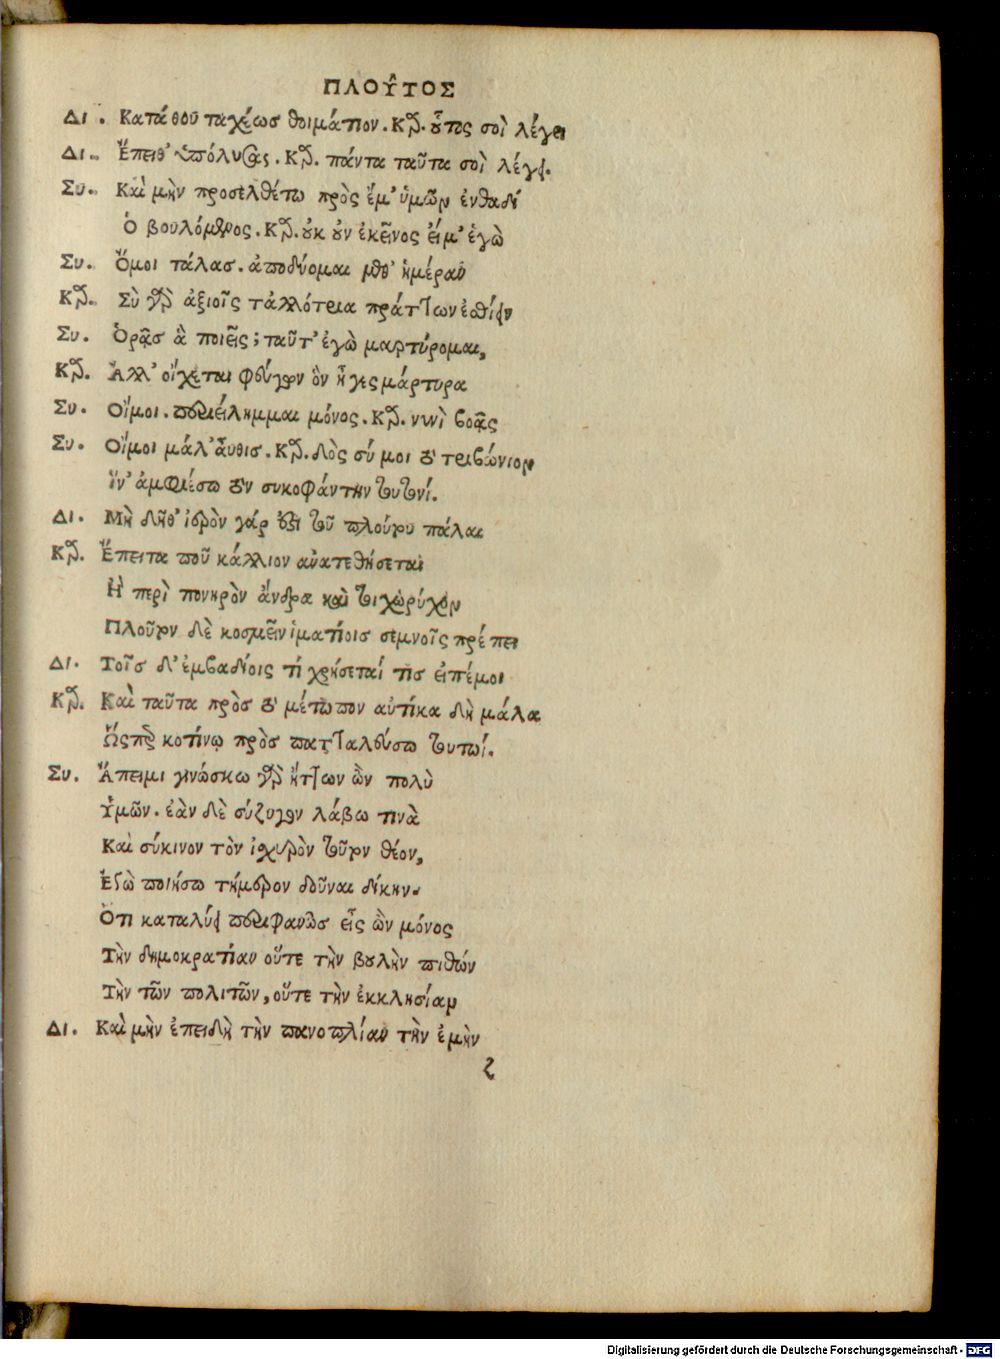 ΠΛΟΥ͂ΤΟΣ
Δι. Κατάθου ταχέως θοιμάτιον. Κρ. οὗτος σοὶ λέγει
Δι. Ἔπειθ' ὑπόλυσαι. Κρ. πάντα ταῦτα σοὶ λέγει.
Συ. Καὶ μὴν προσελθέτω πρὸς ἔμ' ὑμῶν ἐνθαδί
Ὁ βουλόμενος. Κρ. οὐκ οὖν ἐκεῖνος εἴμ' ἐγὼ
Συ. Ὄμοι τάλασ. ἀποδύομαι μεθ' ἡμέραν
Κρ. Σὺ γὰρ ἀξιοῖς τἀλλότρια πράττων ἐσθίειν
Συ. Ὁρᾷσ ἃ ποιεῖς; ταῦτ' ἐγὼ μαρτύρομαι,
Κρ. Ἀλλ' οἴχεται φεύγων ὃν ἦγες μάρτυρα
Συ. Οἴμοι. περιείλημμαι μόνος. Κρ. νυνὶ βοᾷς
Συ. Οἴμοι μάλ' αὖθισ. Κρ. δὸς σύ μοι τὸ τριβώνιον
ἵν' ἀμφιέσω τὸν συκοφάντην τουτονί.
Δι. Μὴ δῆθ' ἱερὸν γάρ ἐστι τοῦ πλούτου πάλαι
Κρ. Ἔπειτα ποῦ κάλλιον ἀνατεθήσεται
Ἢ περὶ πονηρὸν ἄνδρα καὶ τοιχωρύχον
Πλοῦτον δὲ κοσμεῖν ἱματίοισ σεμνοῖς πρέπει
Δι. Τοῖσ δ' ἐμβαδίοις τί χρήσεταί τισ εἰπέμοι
Κρ. Καὶ ταῦτα πρὸσ τὸ μέτωπον αὐτίκα δὴ μάλα
Ὥσπερ κοτίνῳ πρὸσ πατταλεύσω τουτωί.
Συ. Ἄπειμι γινώσκω γὰρ ἥττων ὢν πολὺ
Ὑμῶν. ἐὰν δὲ σύζυγον λάβω τινὰ
Καὶ σύκινον τὸν ἰσχυρὸν τοῦτον θέον,
Ἐγὼ ποιήσω τήμερον δοῦναι δίκην.
Ὁτι καταλύει περιφανῶσ εἷς ὢν μόνος
Τὴν δημοκρατίαν οὔτε τὴν βουλὴν πιθών
Τὴν τῶν πολιτῶν, οὔτε τὴν ἐκκλησίαν
Δι. Καὶ μὴν ἐπειδὴ τὴν πανοπλίαν τὴν ἐμὴν
ζ
Digitalisierung gefördert durch die Deutsche Forschungsgemeinschaft - DFG